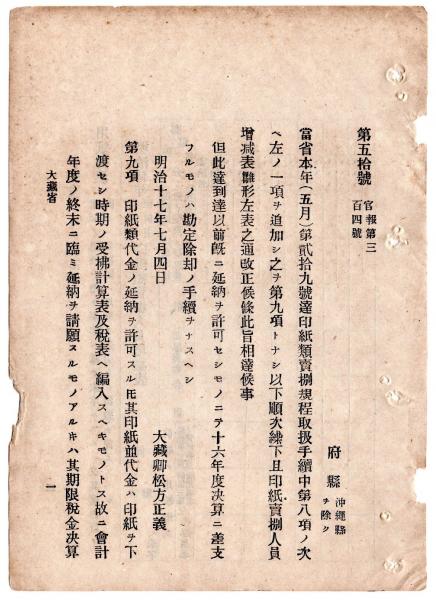 第五拾號 官報第三百四號
府縣 沖繩縣ヲ除ク
當省本年(五月)第貳拾九號達印紙類賣捌規程取扱手續中第八項ノ次
ヘ左ノ一項ヲ追加シ之ヲ第九項トナシ以下順次繰下且印紙賣捌人員
增减表雛形左表之通改正候條此旨相達候事
但此達到達以前既ニ延納ヲ許可セシモノニテ十六年度决算ニ差支
フルモノハ勘定除却ノ手續ヲナスヘシ
明治十七年七月四日
大藏卿松方正義
第九項 印紙類代金ノ延納ヲ許可スル𪜈其印紙並代金ハ印紙ヲ下
渡セシ時期ノ受拂計算表及税表ヘ編入スヘキモノトス故ニ會計
年度ノ終末ニ臨ミ延納ヲ請願スルモノアルキハ其期限税金决算
大藏省
一